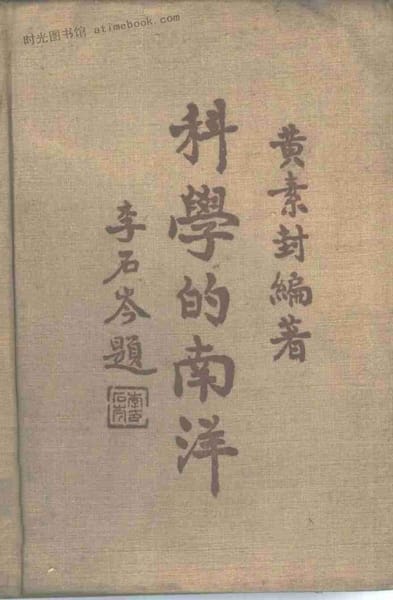 时光图书馆 atimebook.com
黄素封編著
科學的南洋
李石岑題
李石岑